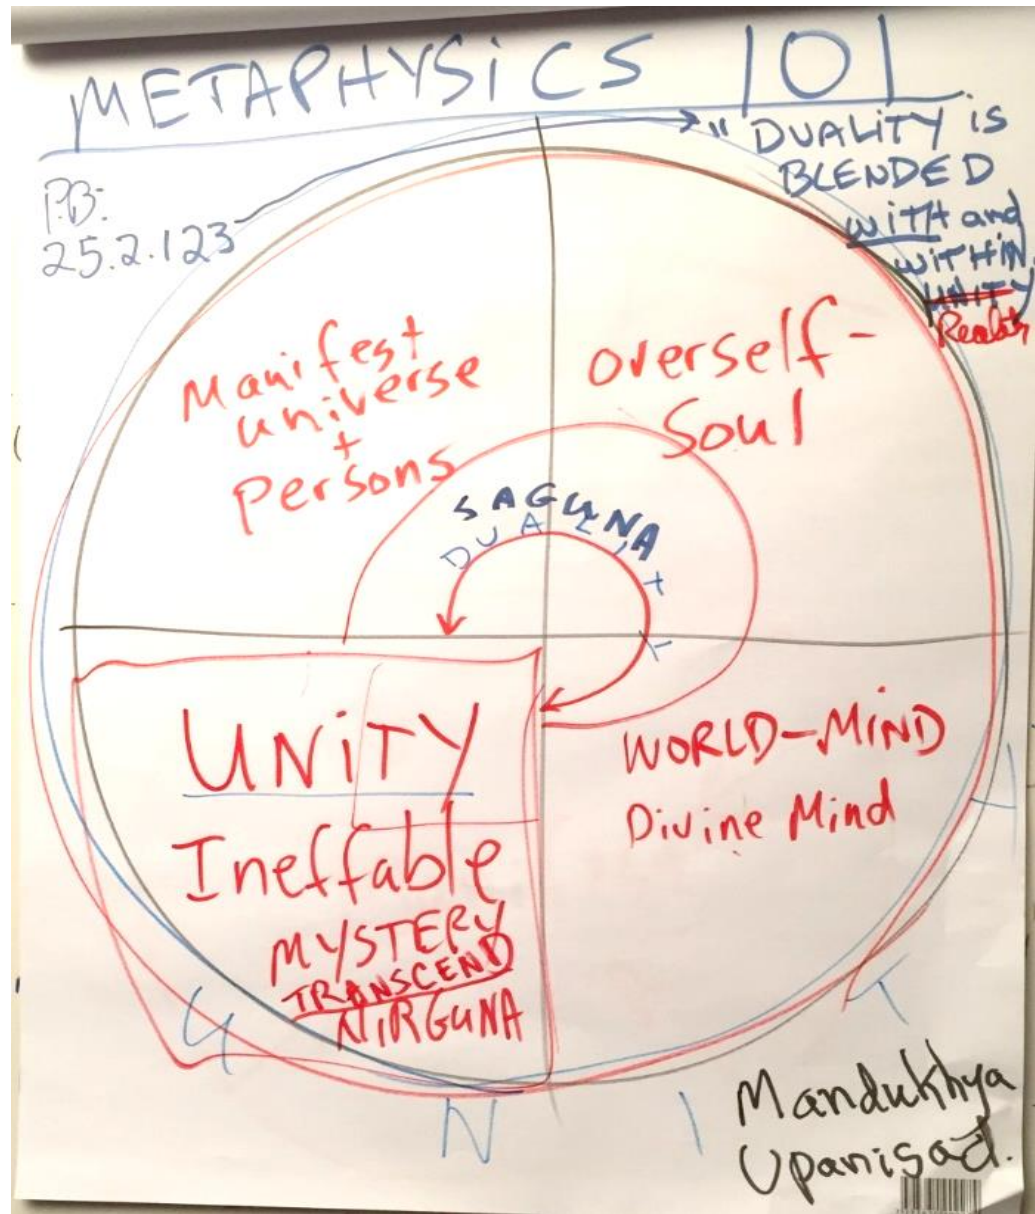 METAPHYSiCS 101
P.B:
25.2.123
"DUALITY is
BLENDED
WITH and
WITHIN
UNITY
Reality
Manifest
universe
+
Persons
Overself-
Soul
SAGUNA
DUALITY
UNiTY
Ineffable
MYSTERY
TRANSCEND
NIRGUNA
WORLD-MiND
Divine Mind
UNITY
Mandukhya
Upanisad.